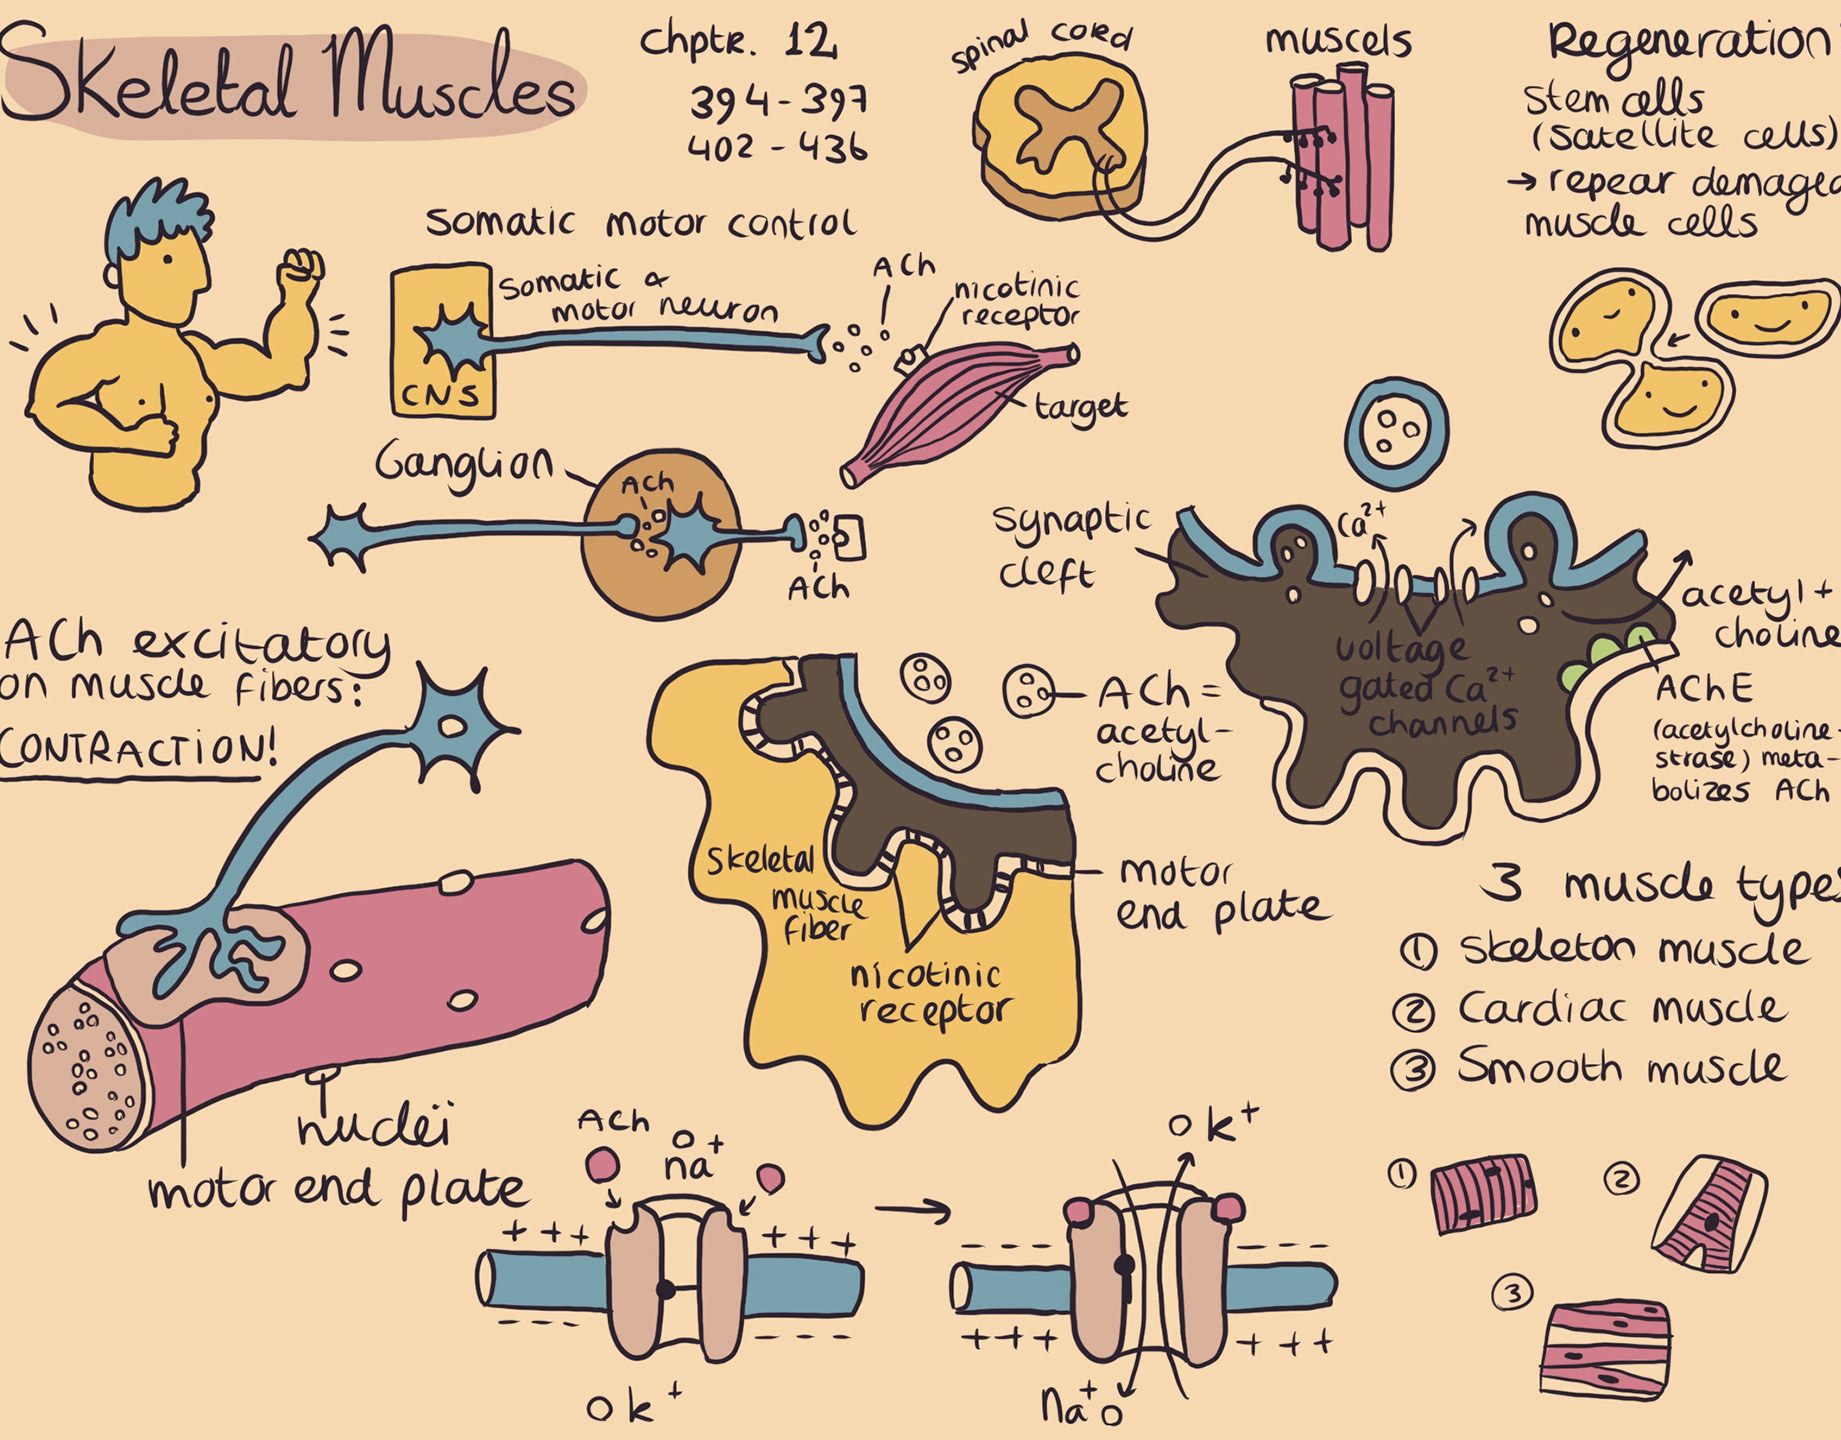 Skeletal Muscles
Chptr. 12
394-397
402-436
spinal cord
muscels
Regeneration
stem cells
(satellite cells)
→ repear demaged
muscle cells
Somatic motor control
Somatic α
motor neuron
CNS
ACh
nicotinic
receptor
target
Ganglion
ACh
ACh
ACh excitatory
on muscle fibers:
CONTRACTION!
nuclei
motor end plate
Skeletal
muscle
fiber
nicotinic
receptor
ACh =
acetyl-
choline
motor
end plate
synaptic
cleft
Ca²⁺
voltage
gated Ca²⁺
channels
acetyl +
choline
AChE
(acetylcholine-
strase) meta-
bolizes ACh
3 muscle types
① skeleton muscle
② Cardiac muscle
③ Smooth muscle
①
②
③
ACh
na⁺
+ + +
+ + +
- - -
- - -
k⁺
→
k⁺
- - - -
- - - -
+ + +
+ + +
na⁺